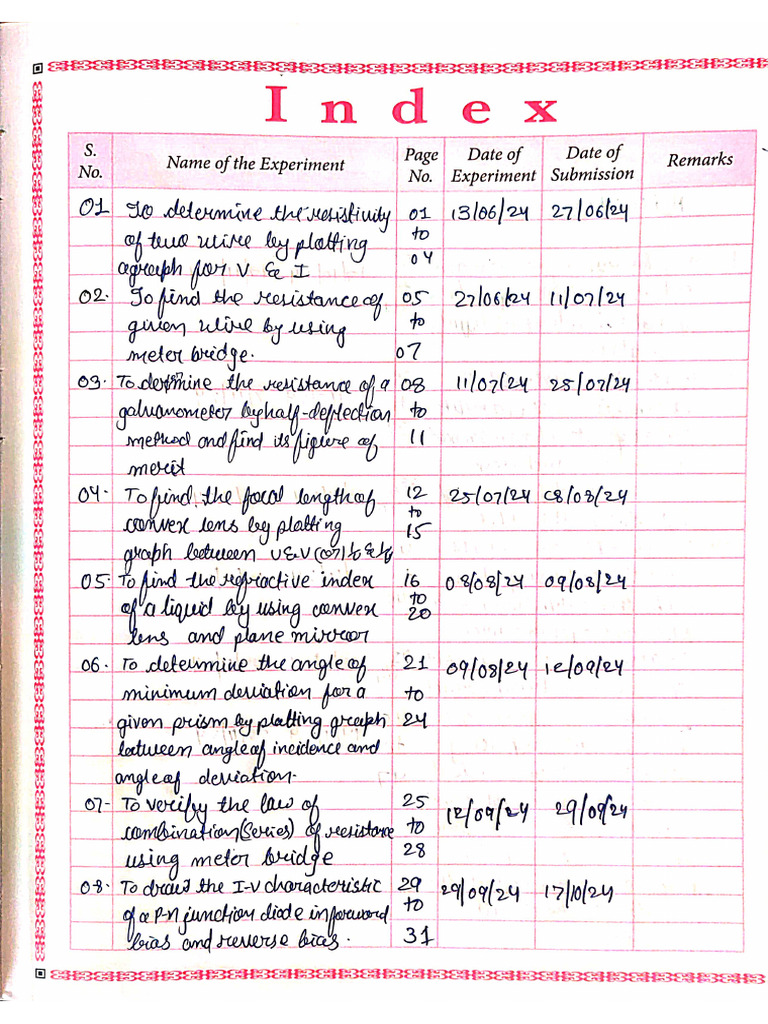 Index
S. No. Name of the Experiment Page No. Date of Experiment Date of Submission Remarks
01 To determine the resistivity 01 13/06/24 27/06/24
of two wire by plotting to
a graph for V & I 04
02. To find the resistance of 05 27/06/24 11/07/24
given wire by using to
meter bridge. 07
03. To determine the resistance of a 08 11/07/24 25/07/24
galvanometer by half-deflection to
method and find its figure of 11
merit
04. To find the focal length of 12 25/07/24 08/08/24
convex lens by plotting to 15
graph between u & v (or)
05. To find the refractive index 16 08/08/24 09/08/24
of a liquid by using convex to 20
lens and plane mirror
06. To determine the angle of 21 09/08/24 12/09/24
minimum deviation for a to
given prism by plotting graph 24
between angle of incidence and
angle of deviation.
07- To verify the law of 25 12/09/24 29/09/24
combination(Series) of resistance to
using meter bridge 28
08. To draw the I-V characteristic 29 29/09/24 17/10/24
of a P-n junction diode in forward to
bias and reverse bias. 31